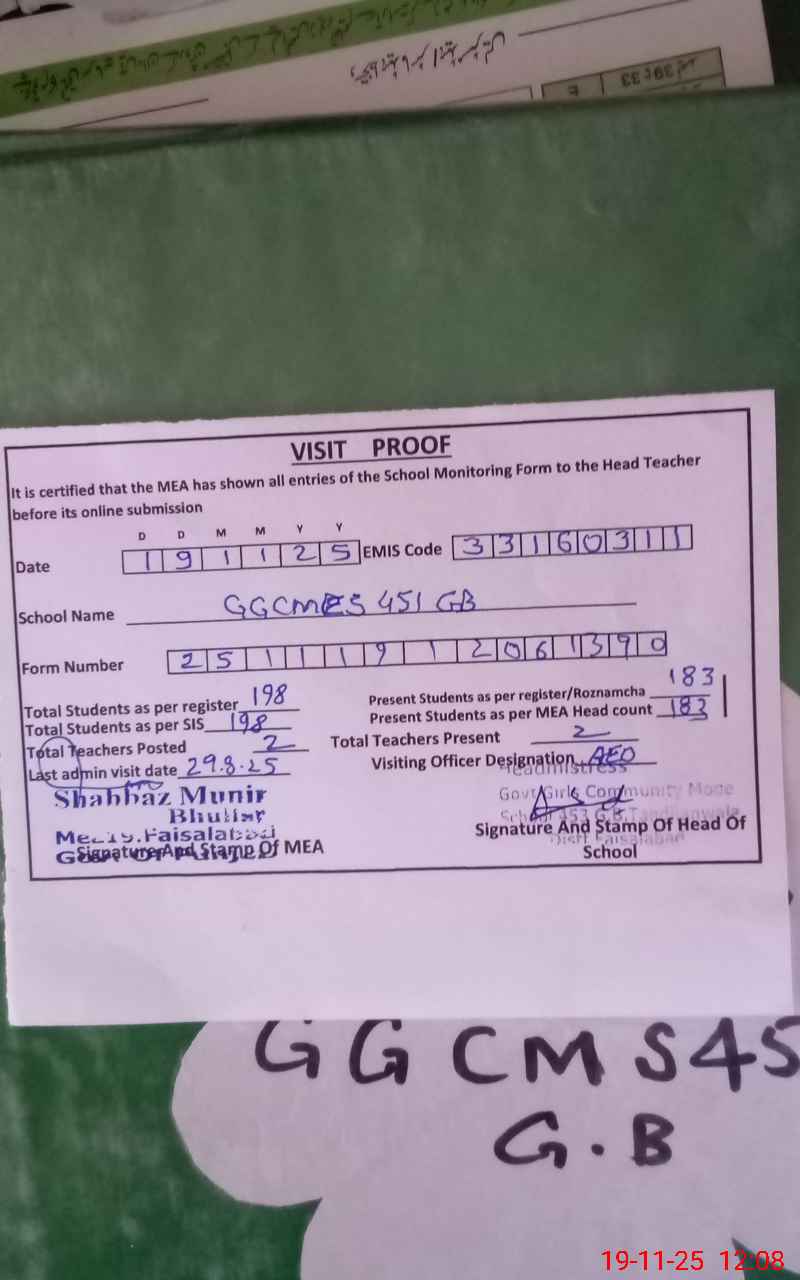 VISIT PROOF
It is certified that the MEA has shown all entries of the School Monitoring Form to the Head Teacher
before its online submission
D D M M Y Y
Date 1 9 1 1 2 5 EMIS Code 3 3 1 6 0 3 1 1
School Name GGCMES 451 GB
Form Number 2 5 1 1 1 9 1 2 0 6 1 3 9 0
Total Students as per register 198 Present Students as per register/Roznamcha 183
Total Students as per SIS 198 Present Students as per MEA Head count 183
Total Teachers Posted 2 Total Teachers Present 2
Last admin visit date 29.8.25 Visiting Officer Designation AEO
Shahbaz Munir
Bhullar
Faisalabad
Signature And Stamp Of MEA
Headmistress
Govt Girls Community Mode
School 453 G.B Tandlianwala
Distt Faisalabad
Signature And Stamp Of Head Of
School
GGCMS45
G.B
19-11-25 12:08